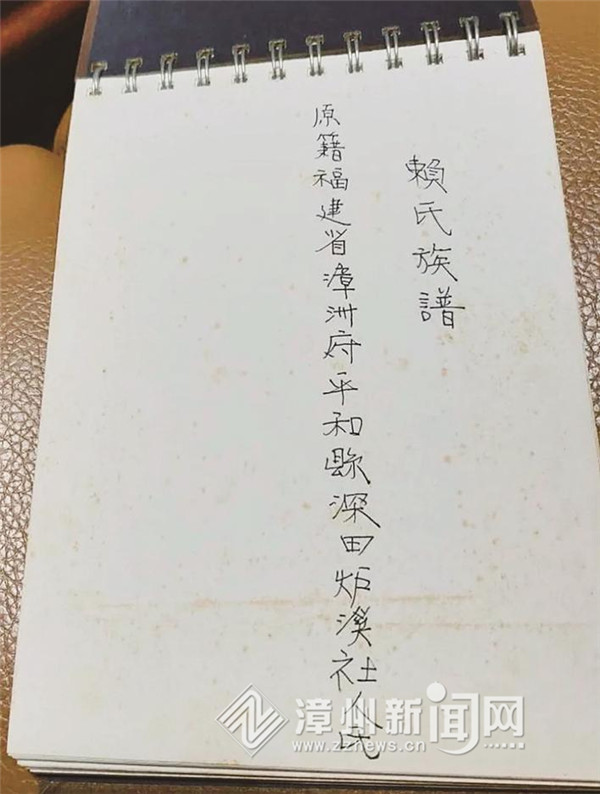 賴氏族譜
原籍福建省漳洲府平和縣深田炉溪社人氏
漳州新闻网
www.zznews.cn